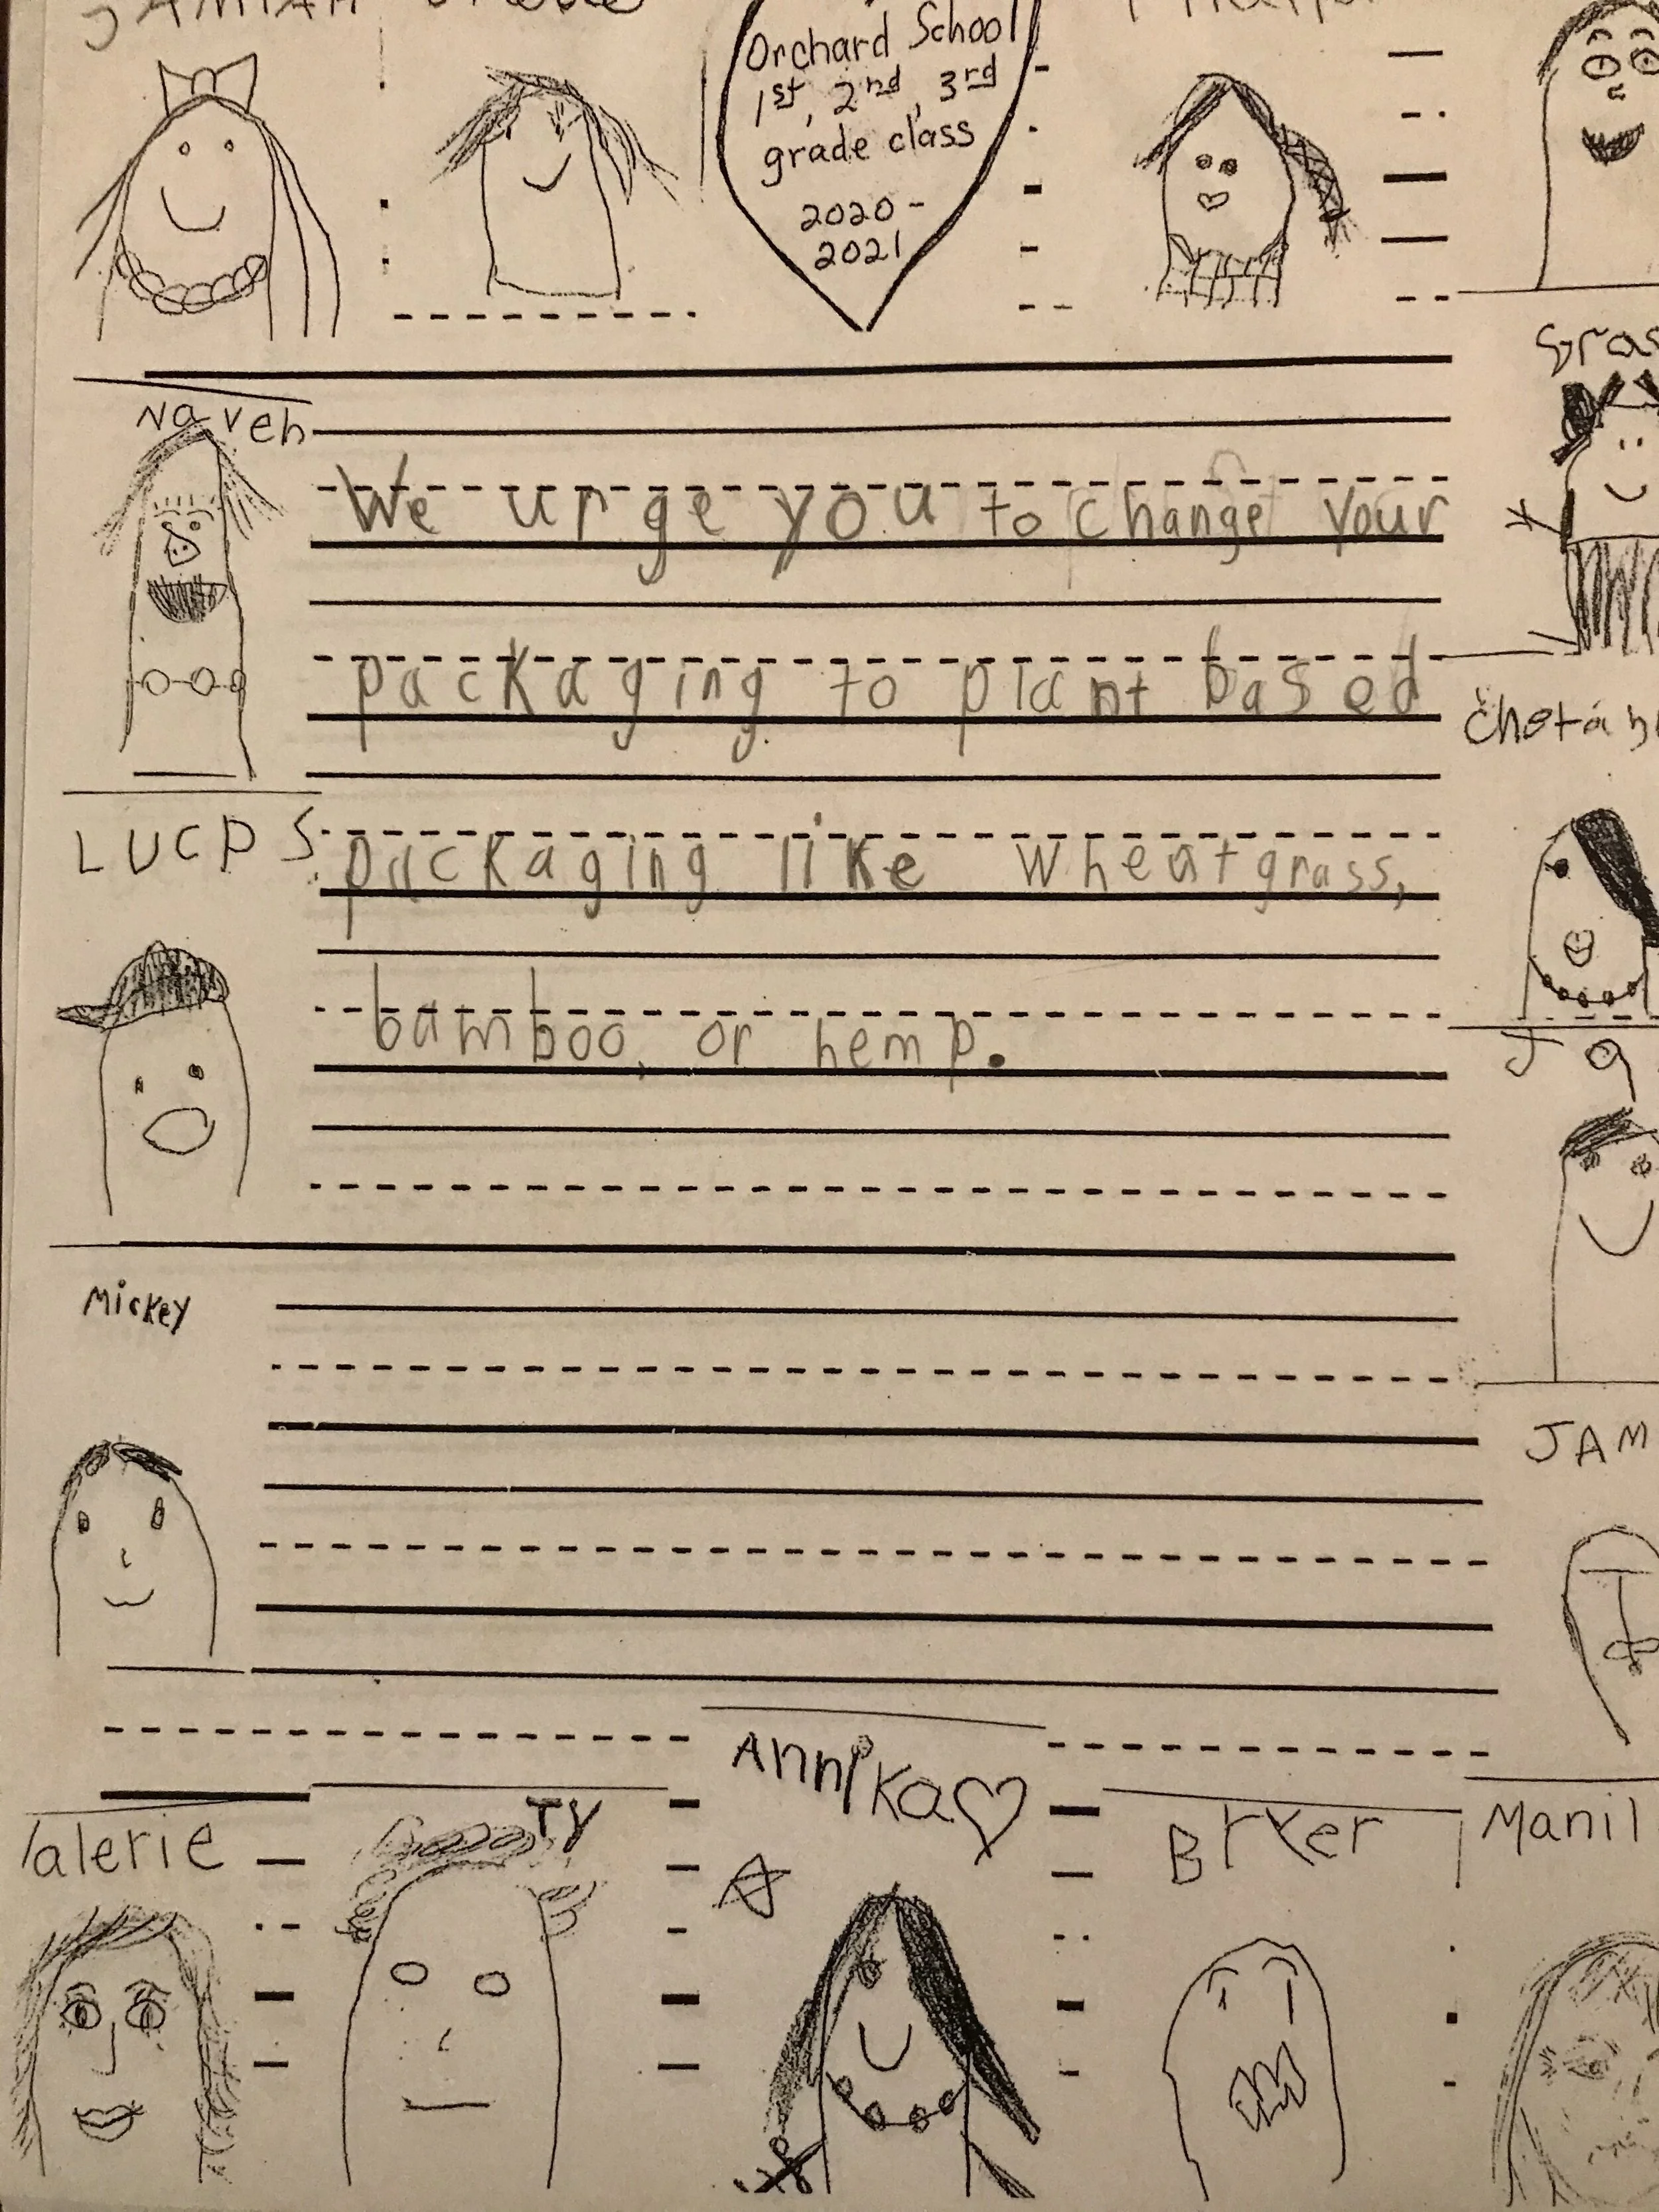 Orchard School
1st, 2nd, 3rd
grade class
2020-
2021
Naveh
We urge you to change your
packaging to plant based
packaging like wheatgrass,
bamboo, or hemp.
LUCAS
Mickey
JAM
Valerie
TY
Annika
Manil